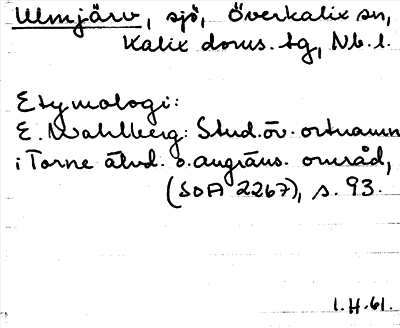 Ulmjärv, sjö, Överkalix sn,
Kalix doms. tg, Nb. l.
Etymologi:
E. Wahlberg: Stud. öv. ortnamn
i Torne älvd. o. angräns. områd,
(SOA 2267), s. 93.
I.H.61.